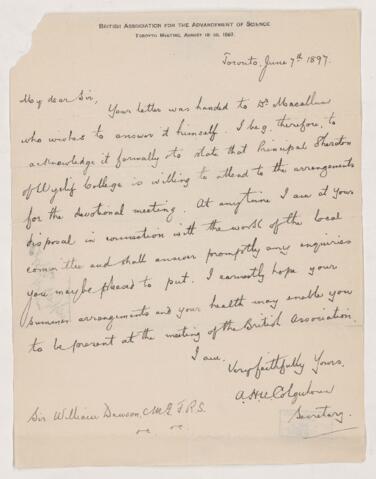 BRITISH ASSOCIATION FOR THE ADVANCEMENT OF SCIENCE
TORONTO MEETING, AUGUST 18-25, 1897.
Toronto, June 7th 1897.
My dear Sir,
Your letter was handed to Dr Macallum
who wishes to answer it himself. I beg, therefore, to
acknowledge it formally & to state that Principal Sheraton
of Wyclif College is willing to attend to the arrangements
for the devotional meeting. At any time I am at your
disposal in connection with the work of the local
committee and shall answer promptly any enquiries
you may be pleased to put. I earnestly hope your
summer arrangements and your health may enable you
to be present at the meeting of the British Association.
I am.
Very faithfully Yours,
A.H.U. Colquhoun
Secretary.
Sir William Dawson, C.M.G. F.R.S.